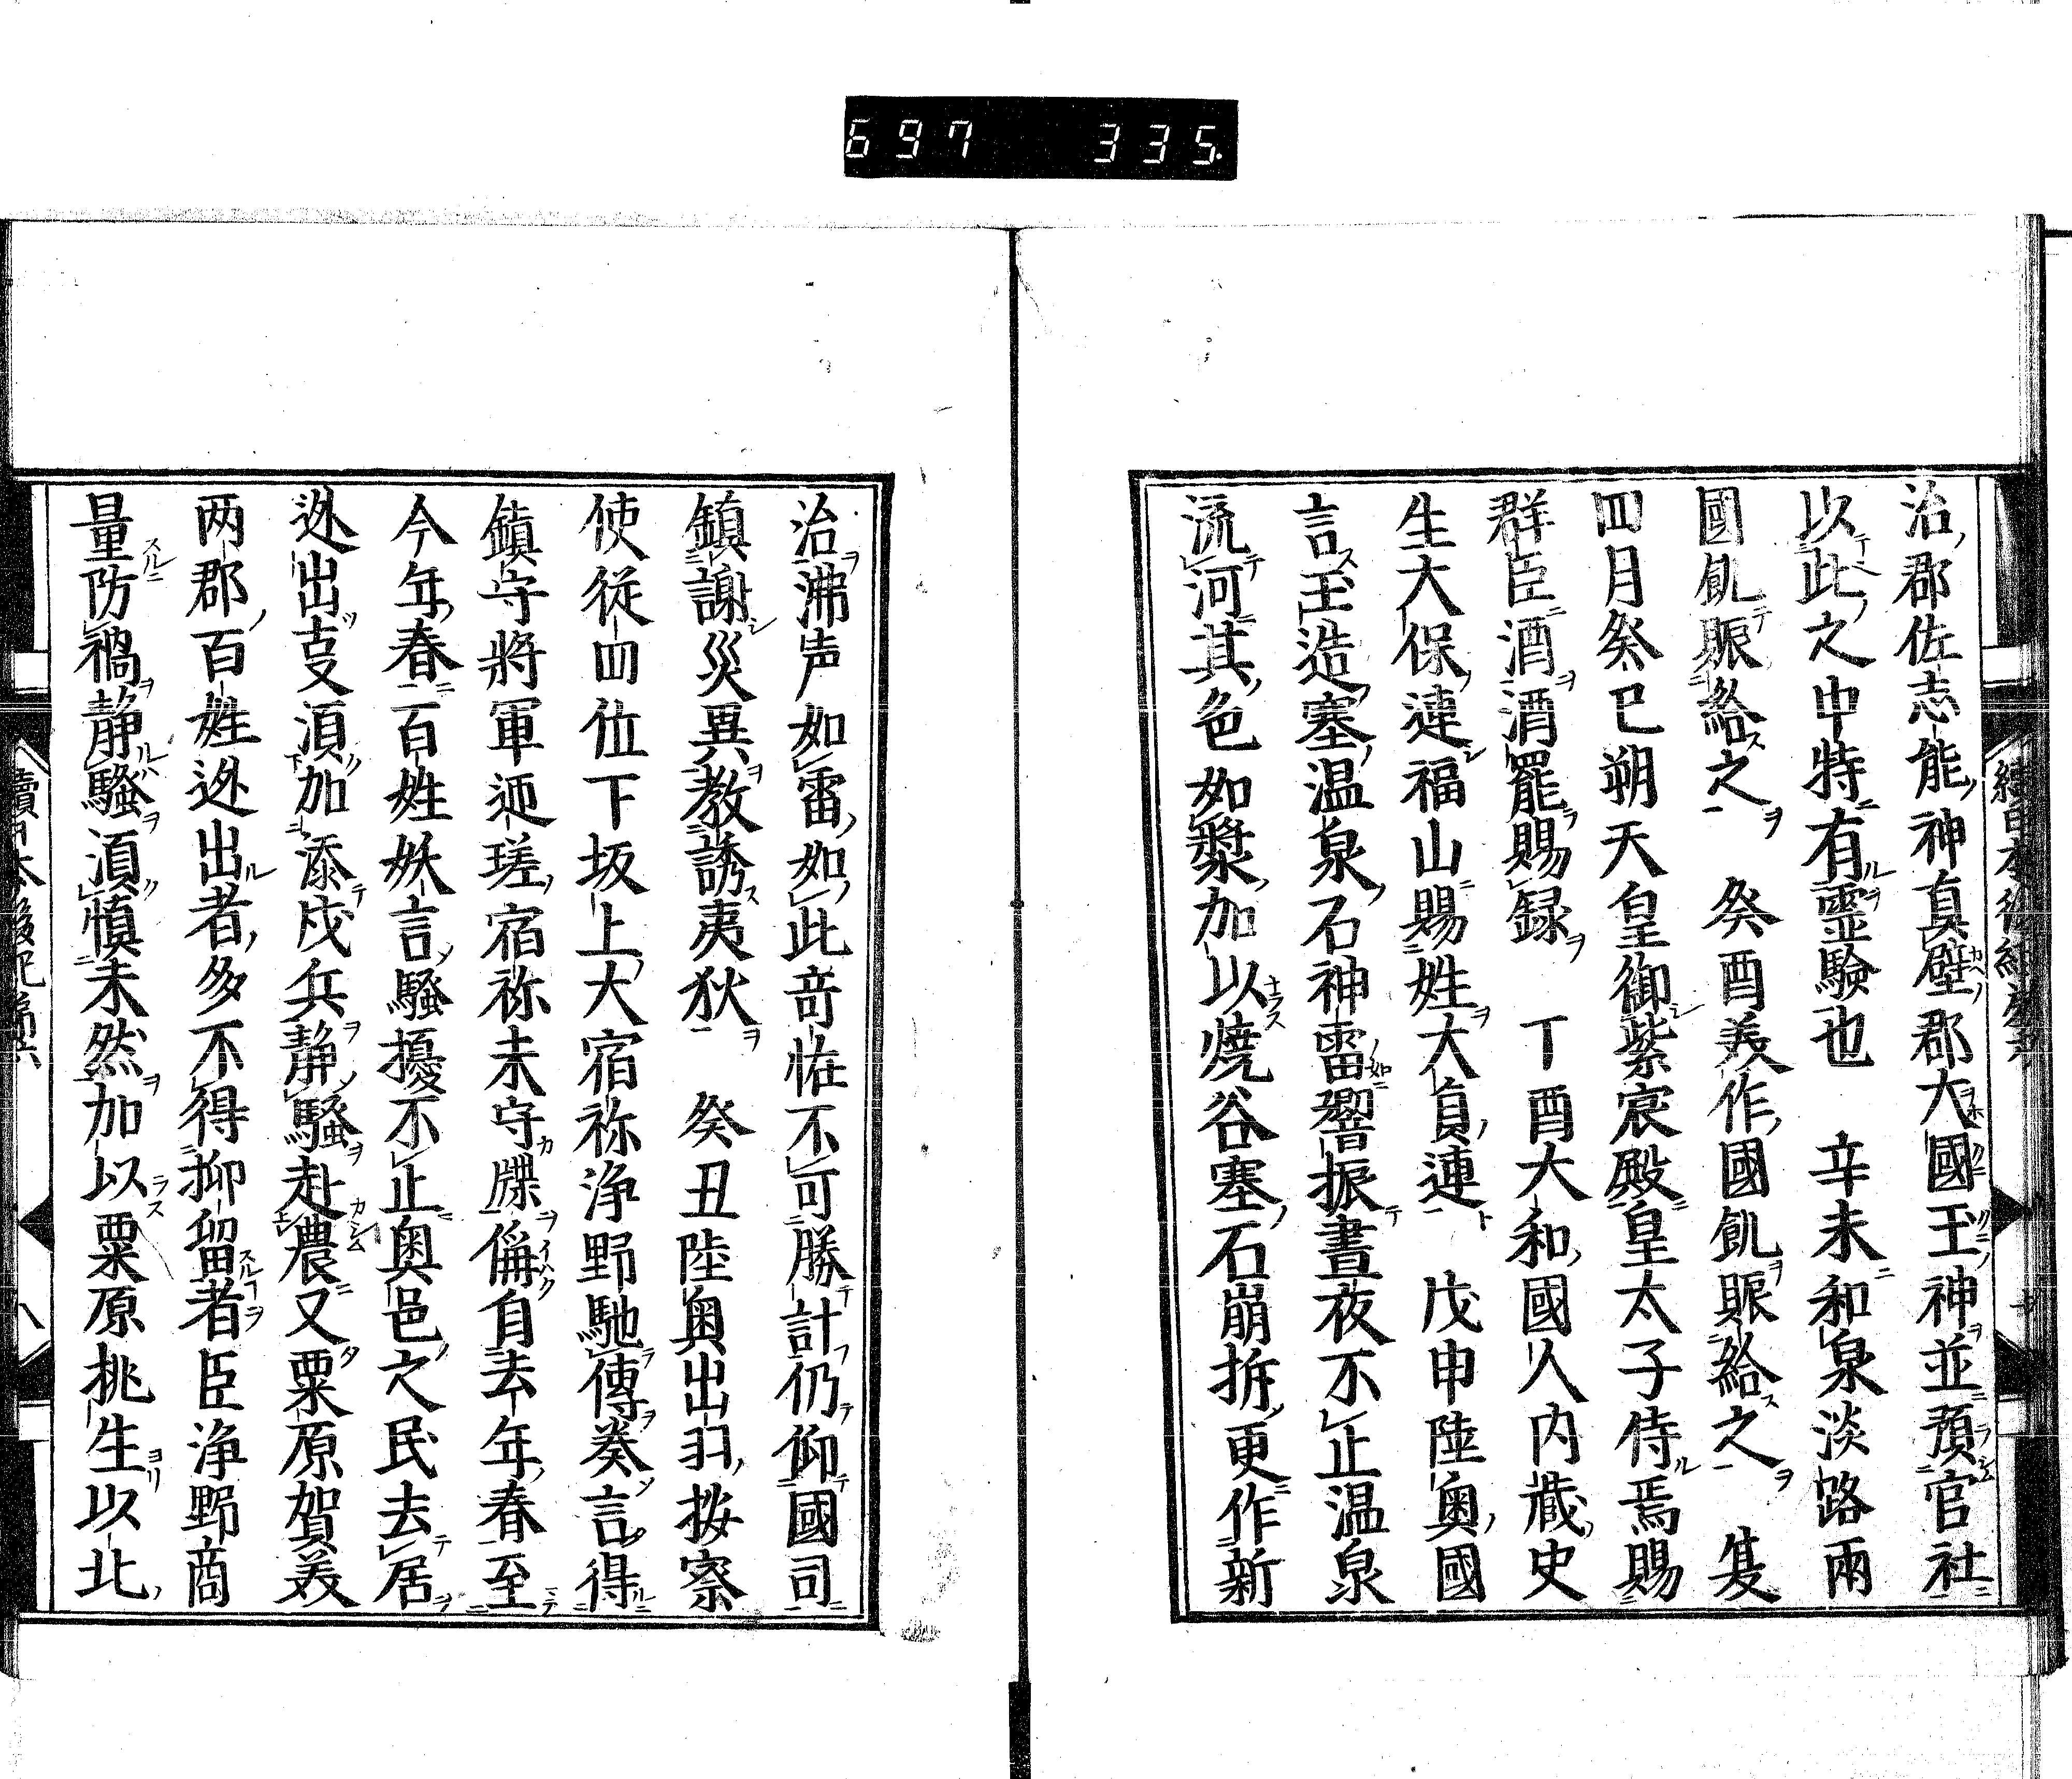 697 335.
治郡佐志能神真壁郡大國玉神並預官社
以此之中特有霊驗也 辛未和泉淡路兩
國飢賑給之 癸酉美作國飢賑給之 夏
四月癸巳朔天皇御紫宸殿皇太子侍焉賜
群臣酒酒罷賜録 丁酉大和國人内蔵史
生大保連福山賜姓大貞連 戊申陸奥國
言玉造塞温泉石神雷響振晝夜不止温泉
流河其色如漿加以燒谷塞石崩拆更作新
治沸声如雷如此奇恠不可勝計仍仰國司
鎮謝災異教誘夷狄 癸丑陸奥出羽按察
使從四位下坂上大宿祢浄野馳傳奏言得
鎮守將軍匝瑳宿祢末守牒偁自去年春至
今年春百姓妖言騒擾不止奥邑之民去居
迯出叓湏加添戍兵静騒赴農又栗原賀美
两郡百姓迯出者多不得抑留者臣浄野商
量防禍静騒湏慎未然加以栗原桃生以北
八